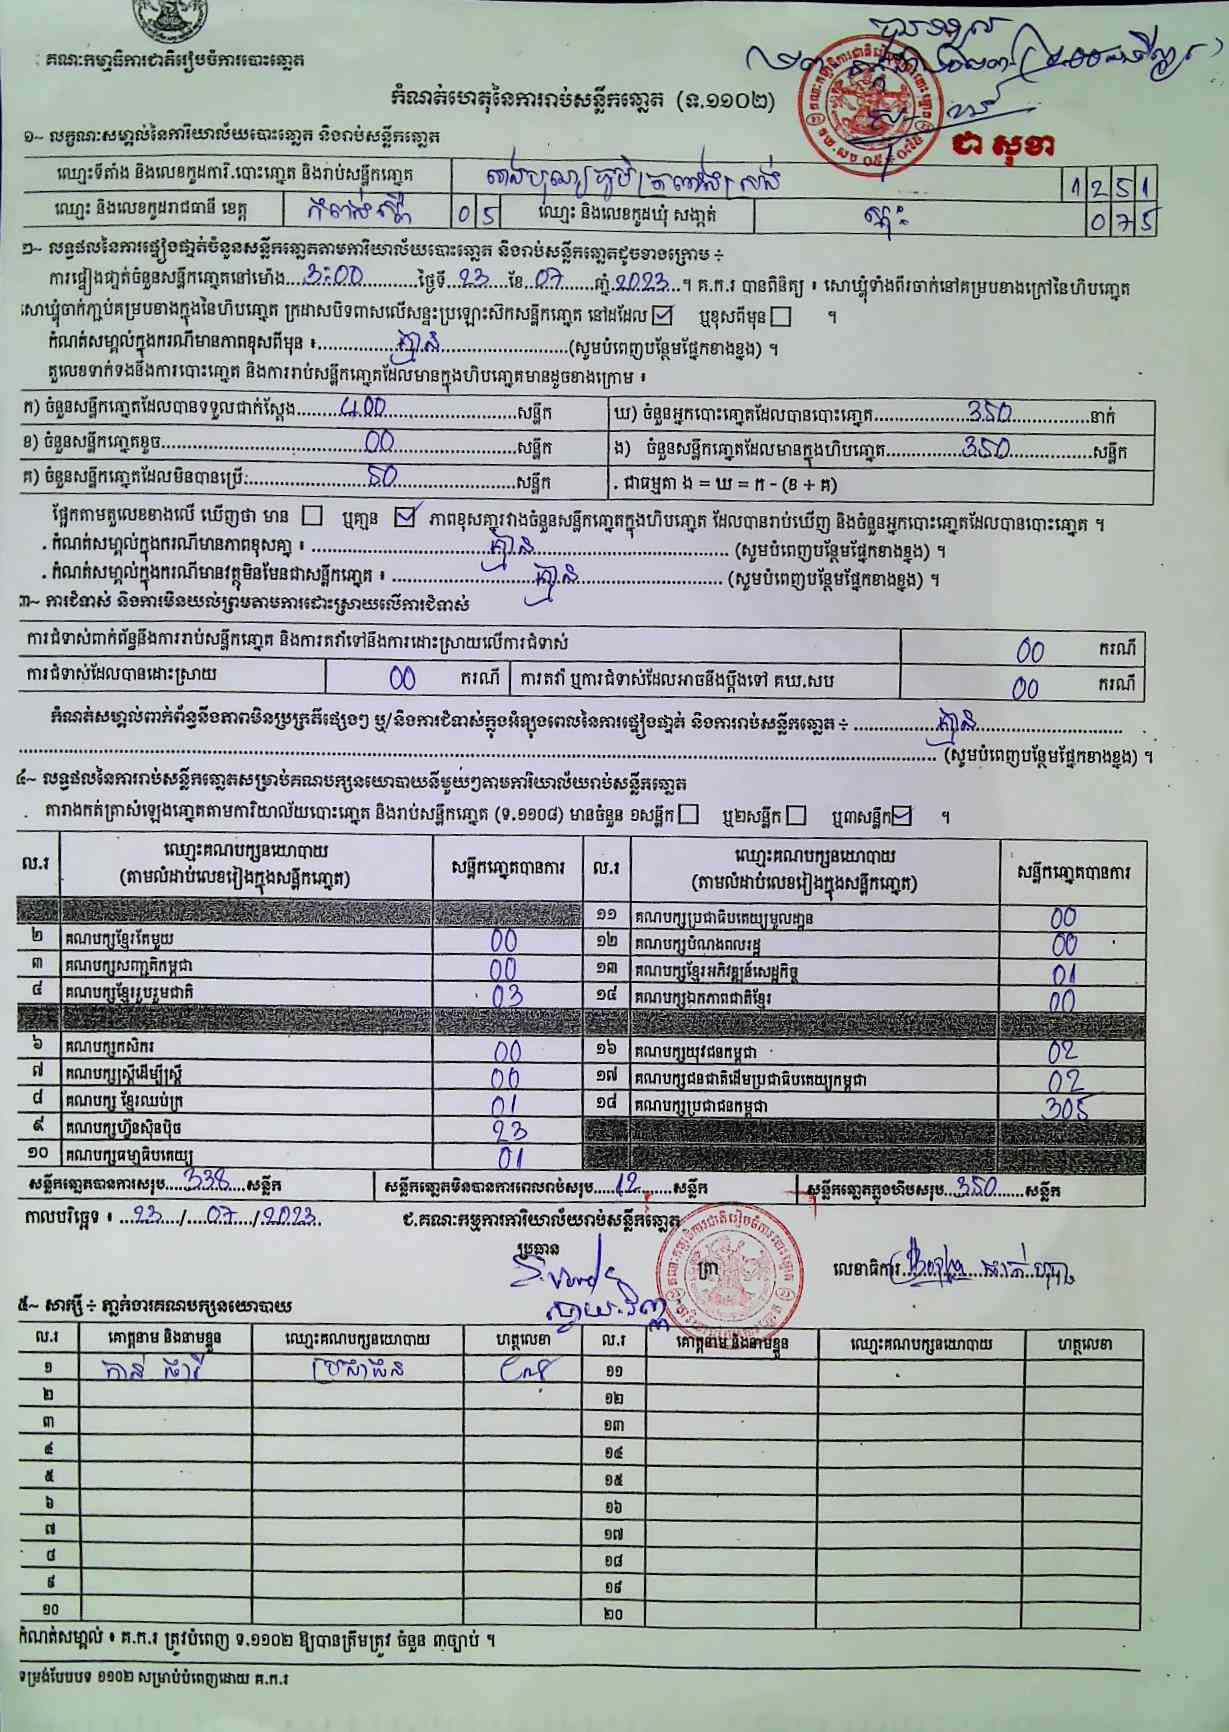 គណៈកម្មាធិការជាតិរៀបចំការបោះឆ្នោត
កំណត់ហេតុនៃការរាប់សន្លឹកឆ្នោត (ទ.១១០២)
ជា សុខា
១~ លក្ខណៈសម្គាល់នៃការិយាល័យបោះឆ្នោត និងរាប់សន្លឹកឆ្នោត
ឈ្មោះទីតាំង និងលេខកូដការិ.បោះឆ្នោត និងរាប់សន្លឹកឆ្នោត 1251
ឈ្មោះ និងលេខកូដរាជធានី ខេត្ត កំពង់ស្ពឺ 05 ឈ្មោះ និងលេខកូដឃុំ សង្កាត់ 075
២~ លទ្ធផលនៃការផ្ទៀងផ្ទាត់ចំនួនសន្លឹកឆ្នោតតាមការិយាល័យបោះឆ្នោត និងរាប់សន្លឹកឆ្នោតដូចខាងក្រោម ÷
ការផ្ទៀងផ្ទាត់ចំនួនសន្លឹកឆ្នោតនៅម៉ោង...3:00...ថ្ងៃទី...23...ខែ...07...ឆ្នាំ...2023...។ គ.ក.រ បានពិនិត្យ ៖ សោឃ្លុំទាំងពីរចាក់នៅគម្របខាងក្រៅនៃហិបឆ្នោត
សោឃ្លុំចាក់ភ្ជាប់គម្របខាងក្នុងនៃហិបឆ្នោត ក្រដាសបិទពាសលើសន្ទះប្រឡោះស៊កសន្លឹកឆ្នោត នៅដដែល ☑ ឬខុសពីមុន ☐ ។
កំណត់សម្គាល់ក្នុងករណីមានភាពខុសពីមុន ៖...គ្មាន...(សូមបំពេញបន្ថែមផ្នែកខាងខ្នង) ។
តួលេខទាក់ទងនឹងការបោះឆ្នោត និងការរាប់សន្លឹកឆ្នោតដែលមានក្នុងហិបឆ្នោតមានដូចខាងក្រោម ៖
ក) ចំនួនសន្លឹកឆ្នោតដែលបានទទួលជាក់ស្តែង...400...សន្លឹក ឃ) ចំនួនអ្នកបោះឆ្នោតដែលបានបោះឆ្នោត...350...នាក់
ខ) ចំនួនសន្លឹកឆ្នោតខូច...00...សន្លឹក ង) ចំនួនសន្លឹកឆ្នោតដែលមានក្នុងហិបឆ្នោត...350...សន្លឹក
គ) ចំនួនសន្លឹកឆ្នោតដែលមិនបានប្រើ...50...សន្លឹក . ជាធម្មតា ង = ឃ = ក - (ខ + គ)
ផ្អែកតាមតួលេខខាងលើ ឃើញថា មាន ☐ ឬគ្មាន ☑ ភាពខុសគ្នារវាងចំនួនសន្លឹកឆ្នោតក្នុងហិបឆ្នោត ដែលបានរាប់ឃើញ និងចំនួនអ្នកបោះឆ្នោតដែលបានបោះឆ្នោត ។
. កំណត់សម្គាល់ក្នុងករណីមានភាពខុសគ្នា ៖ ...គ្មាន... (សូមបំពេញបន្ថែមផ្នែកខាងខ្នង) ។
. កំណត់សម្គាល់ក្នុងករណីមានវត្ថុមិនមែនជាសន្លឹកឆ្នោត ៖ ...គ្មាន... (សូមបំពេញបន្ថែមផ្នែកខាងខ្នង) ។
៣~ ការជំទាស់ និងការមិនយល់ព្រមតាមការដោះស្រាយលើការជំទាស់
ការជំទាស់ពាក់ព័ន្ធនឹងការរាប់សន្លឹកឆ្នោត និងការតវ៉ាទៅនឹងការដោះស្រាយលើការជំទាស់ 00 ករណី
ការជំទាស់ដែលបានដោះស្រាយ 00 ករណី ការតវ៉ា ឬការជំទាស់ដែលអាចនឹងប្តឹងទៅ គឃ.សប 00 ករណី
កំណត់សម្គាល់ពាក់ព័ន្ធនឹងភាពមិនប្រក្រតីផ្សេងៗ ឬ/និងការជំទាស់ក្នុងអំឡុងពេលនៃការផ្ទៀងផ្ទាត់ និងការរាប់សន្លឹកឆ្នោត ÷ ...គ្មាន...
... (សូមបំពេញបន្ថែមផ្នែកខាងខ្នង) ។
៤~ លទ្ធផលនៃការរាប់សន្លឹកឆ្នោតសម្រាប់គណបក្សនយោបាយនីមួយៗតាមការិយាល័យរាប់សន្លឹកឆ្នោត
តារាងកត់ត្រាសំឡេងឆ្នោតតាមការិយាល័យបោះឆ្នោត និងរាប់សន្លឹកឆ្នោត (ទ.១១០៨) មានចំនួន ១សន្លឹក ☐ ឬ២សន្លឹក ☐ ឬ៣សន្លឹក ☑ ។
ល.រ ឈ្មោះគណបក្សនយោបាយ (តាមលំដាប់លេខរៀងក្នុងសន្លឹកឆ្នោត) សន្លឹកឆ្នោតបានការ ល.រ ឈ្មោះគណបក្សនយោបាយ (តាមលំដាប់លេខរៀងក្នុងសន្លឹកឆ្នោត) សន្លឹកឆ្នោតបានការ
១១ គណបក្សប្រជាធិបតេយ្យមូលដ្ឋាន 00
២ គណបក្សខ្មែរតែមួយ 00 ១២ គណបក្សបំណងពលរដ្ឋ 00
៣ គណបក្សសញ្ជាតិកម្ពុជា 00 ១៣ គណបក្សខ្មែរអភិវឌ្ឍន៍សេដ្ឋកិច្ច 01
៤ គណបក្សខ្មែររួបរួមជាតិ 03 ១៤ គណបក្សឯកភាពជាតិខ្មែរ 00
៦ គណបក្សកសិករ 00 ១៦ គណបក្សយុវជនកម្ពុជា 02
៧ គណបក្សស្ត្រីដើម្បីស្ត្រី 00 ១៧ គណបក្សជនជាតិដើមប្រជាធិបតេយ្យកម្ពុជា 02
៨ គណបក្ស ខ្មែរឈប់ក្រ 01 ១៨ គណបក្សប្រជាជនកម្ពុជា 305
៩ គណបក្សហ៊្វុនស៊ិនប៉ិច 23
១០ គណបក្សធម្មាធិបតេយ្យ 01
សន្លឹកឆ្នោតបានការសរុប...338...សន្លឹក សន្លឹកឆ្នោតមិនបានការពេលរាប់សរុប...12...សន្លឹក សន្លឹកឆ្នោតក្នុងហិបសរុប...350...សន្លឹក
កាលបរិច្ឆេទ ៖ ...23.../...07.../...2023... ជ.គណៈកម្មការការិយាល័យរាប់សន្លឹកឆ្នោត
ប្រធាន ត្រា លេខាធិការ
៥~ សាក្សី ÷ ភ្នាក់ងារគណបក្សនយោបាយ
ល.រ គោត្តនាម និងនាមខ្លួន ឈ្មោះគណបក្សនយោបាយ ហត្ថលេខា ល.រ គោត្តនាម និងនាមខ្លួន ឈ្មោះគណបក្សនយោបាយ ហត្ថលេខា
១ ប្រជាជន ១១
២ ១២
៣ ១៣
៤ ១៤
៥ ១៥
៦ ១៦
៧ ១៧
៨ ១៨
៩ ១៩
១០ ២០
កំណត់សម្គាល់ ៖ គ.ក.រ ត្រូវបំពេញ ទ.១១០២ ឱ្យបានត្រឹមត្រូវ ចំនួន ៣ច្បាប់ ។
ទម្រង់បែបបទ ១១០២ សម្រាប់បំពេញដោយ គ.ក.រ